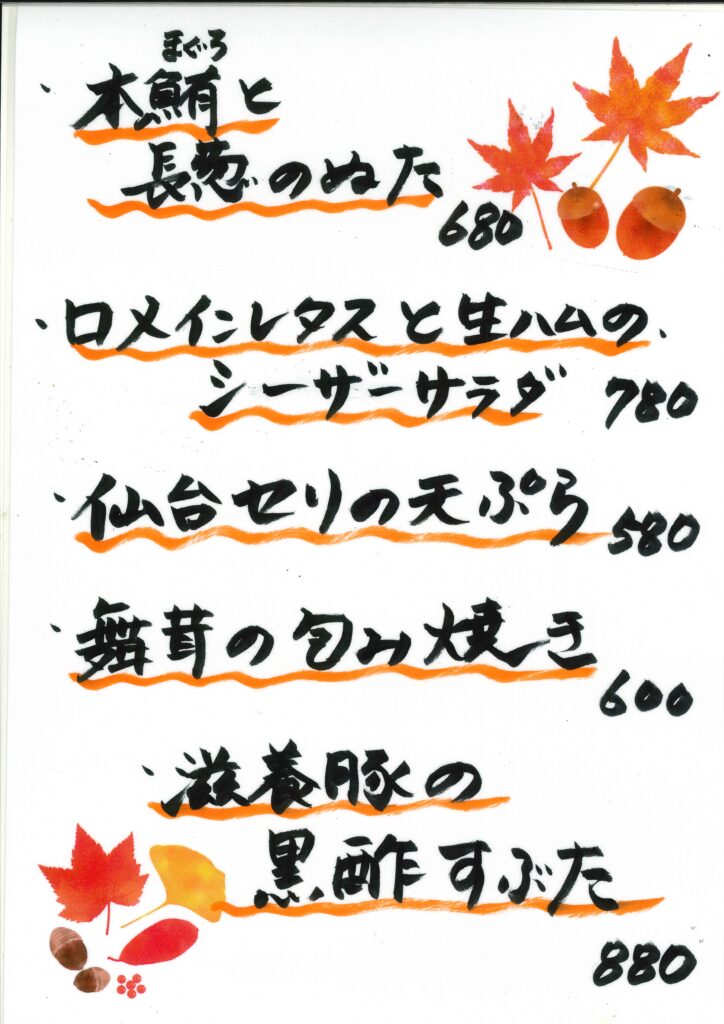 まぐろ
・本鮪と
長葱のぬた
680
・ロメインレタスと生ハムの
シーザーサラダ 780
・仙台セリの天ぷら 580
・舞茸の包み焼き
600
・滋養豚の
黒酢すぶた
880